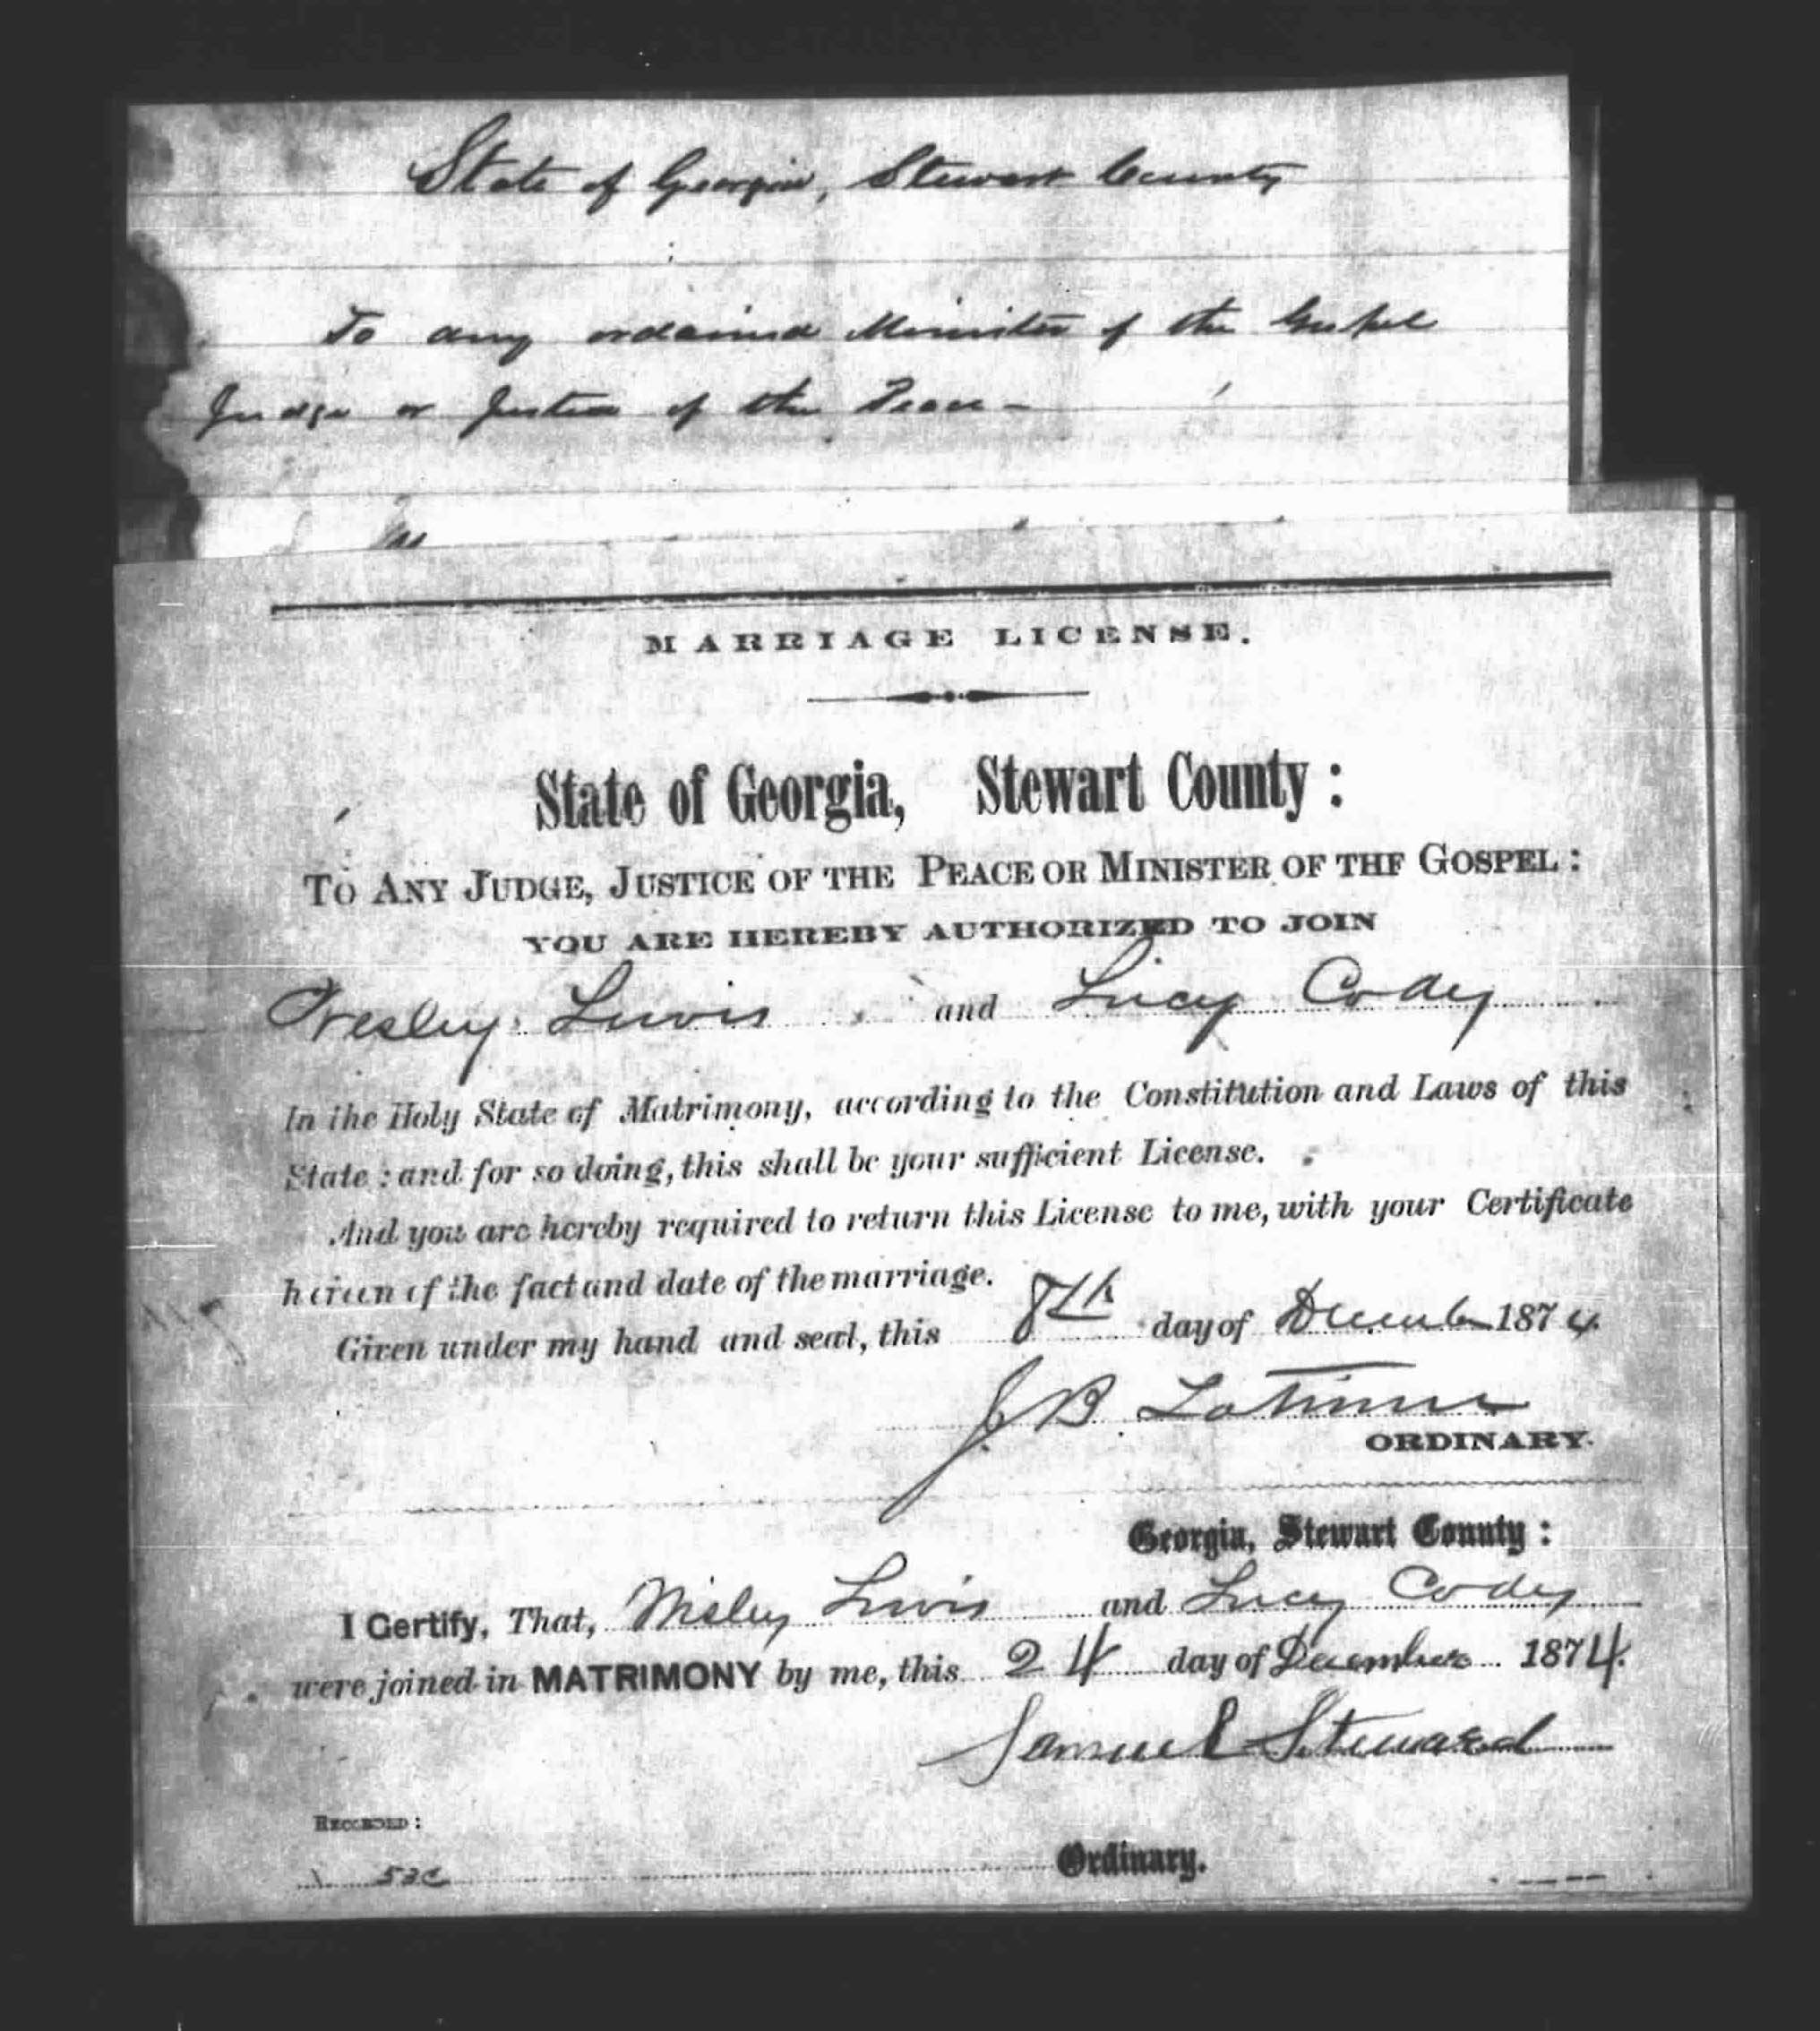 State of Georgia, Stewart County
To any ordained Minister of the Gospel
Judge or Justice of the Peace –
MARRIAGE LICENSE.
State of Georgia, Stewart County :
TO ANY JUDGE, JUSTICE OF THE PEACE OR MINISTER OF THE GOSPEL :
YOU ARE HEREBY AUTHORIZED TO JOIN
Wesley Lewis and Lucy Cody
In the Holy State of Matrimony, according to the Constitution and Laws of this
State : and for so doing, this shall be your sufficient License.
And you are hereby required to return this License to me, with your Certificate
hereon of the fact and date of the marriage.
Given under my hand and seal, this 8th day of December 1874.
J. B. Latimer
ORDINARY.
Georgia, Stewart County :
I Certify, That, Wesley Lewis and Lucy Cody
were joined in MATRIMONY by me, this 24 day of December 1874.
Samuel Steward
RECORDED :
Ordinary.